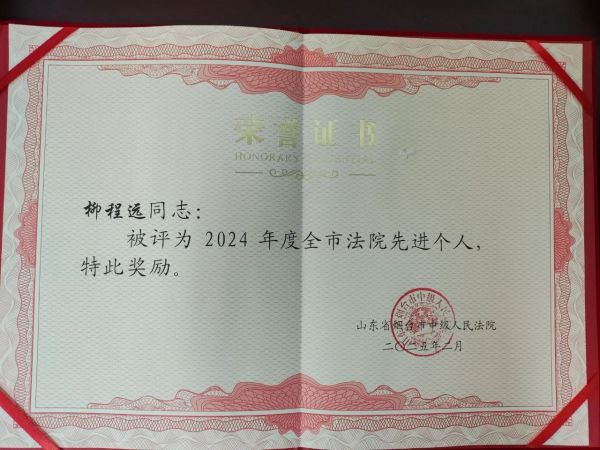 荣誉证书
HONORARY CREDENTIAL
柳程远同志：
被评为 2024 年度全市法院先进个人，
特此奖励。
山东省烟台市中级人民法院
二〇二五年二月